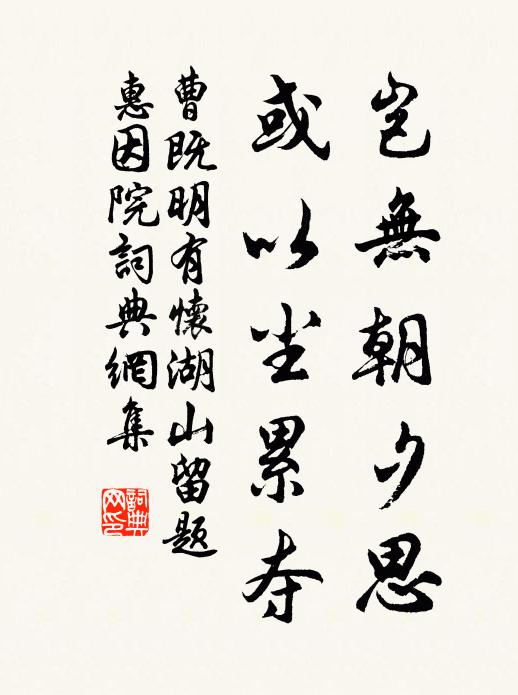 岂無朝夕思
或以尘累夺
曹既明有懷湖山留题
惠因院詞典網集
詞典网印